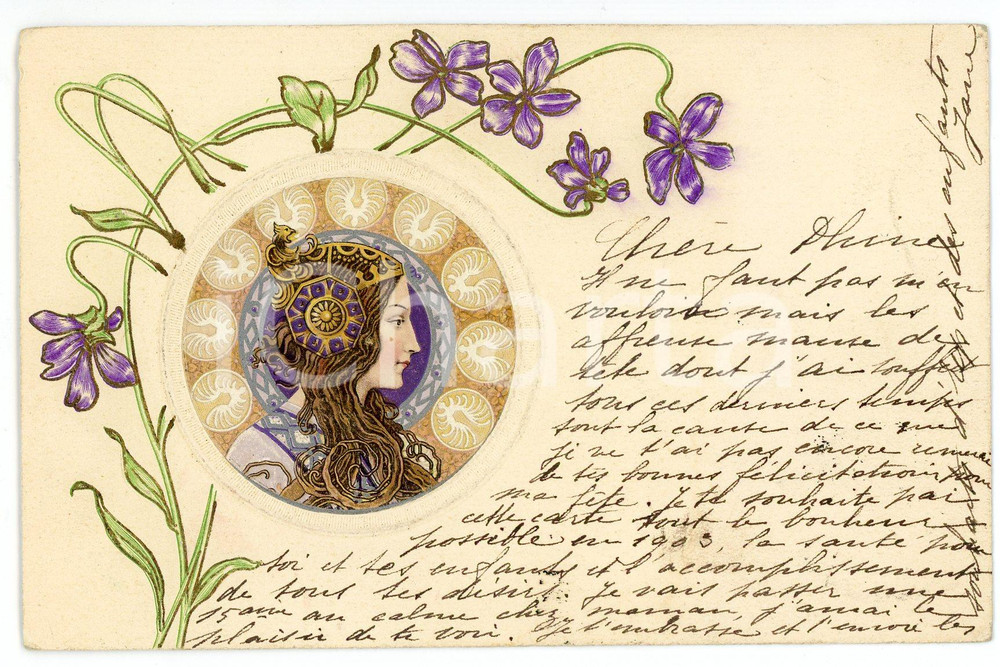 Chère Phine
Il ne faut pas m'en
vouloir mais les
affreuse mause de
tête dont j'ai souffert
tous ces derniers temps
sont la cause de ce que
je ne t'ai pas encore remercié
de tes bonnes félicitations pour
ma fête. Je te souhaite par
cette carte tout le bonheur
possible en 1903, la santé pour
toi et tes enfants et l'accomplissement
de tous tes désirs. Je vais passer une
15aine au calme chez maman j'aurai le
plaisir de te voir. Je t'embrasse et t'envoie les
et des enfants
Jane